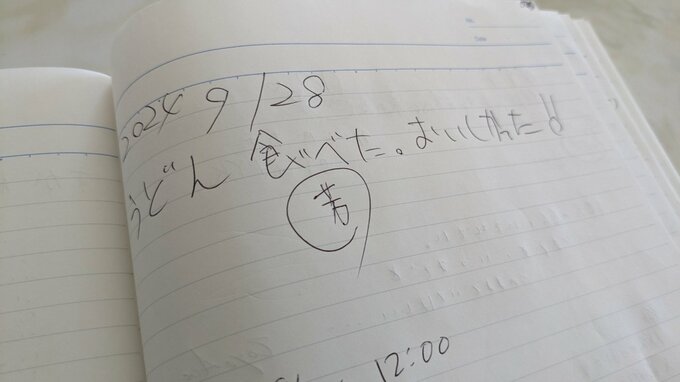 2024 9/28
うどん 食べべた。おいしかった!
12:00